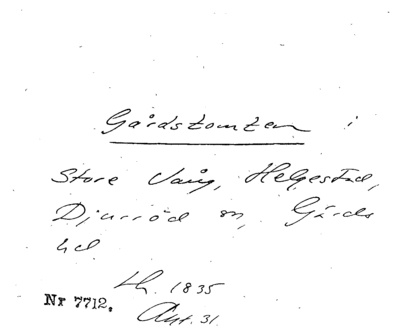 Gårdstomten i
Store Vång, Helgestad,
Djurröd sn, Gärds
hd
Lh. 1835
Nr 7712. Ant. 31.